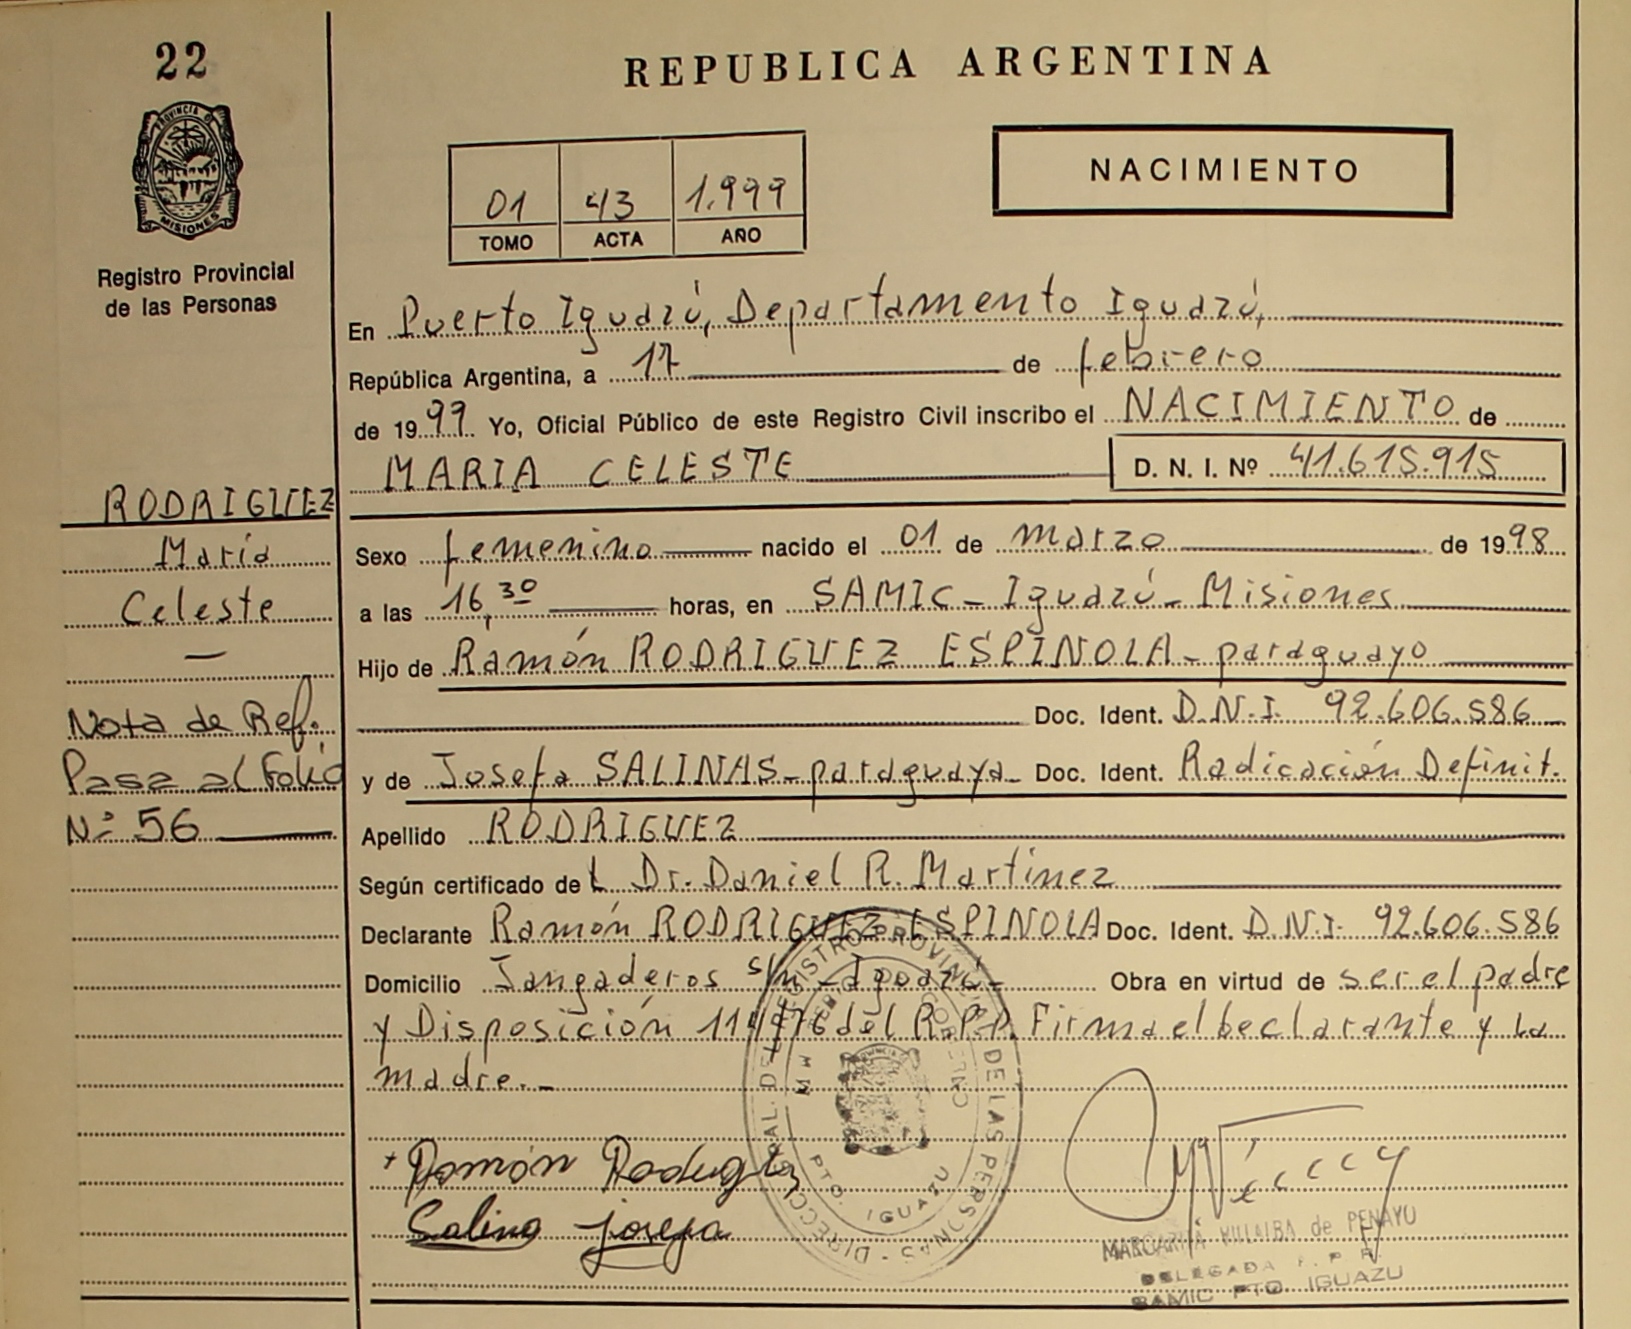 22
REPUBLICA ARGENTINA
PROVINCIA DE
MISIONES
Registro Provincial
de las Personas
01 43 1.999
TOMO ACTA AÑO
NACIMIENTO
En Puerto Iguazú, Departamento Iguazú,
República Argentina, a 17 de febrero
de 1999 Yo, Oficial Público de este Registro Civil inscribo el NACIMIENTO de
MARIA CELESTE D. N. I. Nº 41.615.915
RODRIGUEZ
María
Celeste
—
Nota de Ref.
Pasa al Folio
Nº 56
Sexo femenino nacido el 01 de marzo de 1998
a las 16,30 horas, en SAMIC - Iguazú - Misiones
Hijo de Ramón RODRIGUEZ ESPINOLA - paraguayo
Doc. Ident. D.N.I. 92.606.586
y de Josefa SALINAS - paraguaya - Doc. Ident. Radicación Definit.
Apellido RODRIGUEZ
Según certificado del Dr. Daniel R. Martínez
Declarante Ramón RODRIGUEZ ESPINOLA Doc. Ident. D.N.I. 92.606.586
Domicilio Jangaderos s/n - Iguazú - Obra en virtud de ser el padre
y Disposición del R.P.P. Firma el declarante y la
madre.-
Ramón
Salina Josefa
DIRECCION DE LAS PERSONAS
PTO. IGUAZU
MARGARITA VILLALBA de PENAYO
DELEGADA R. P. P.
SAMIC PTO. IGUAZU